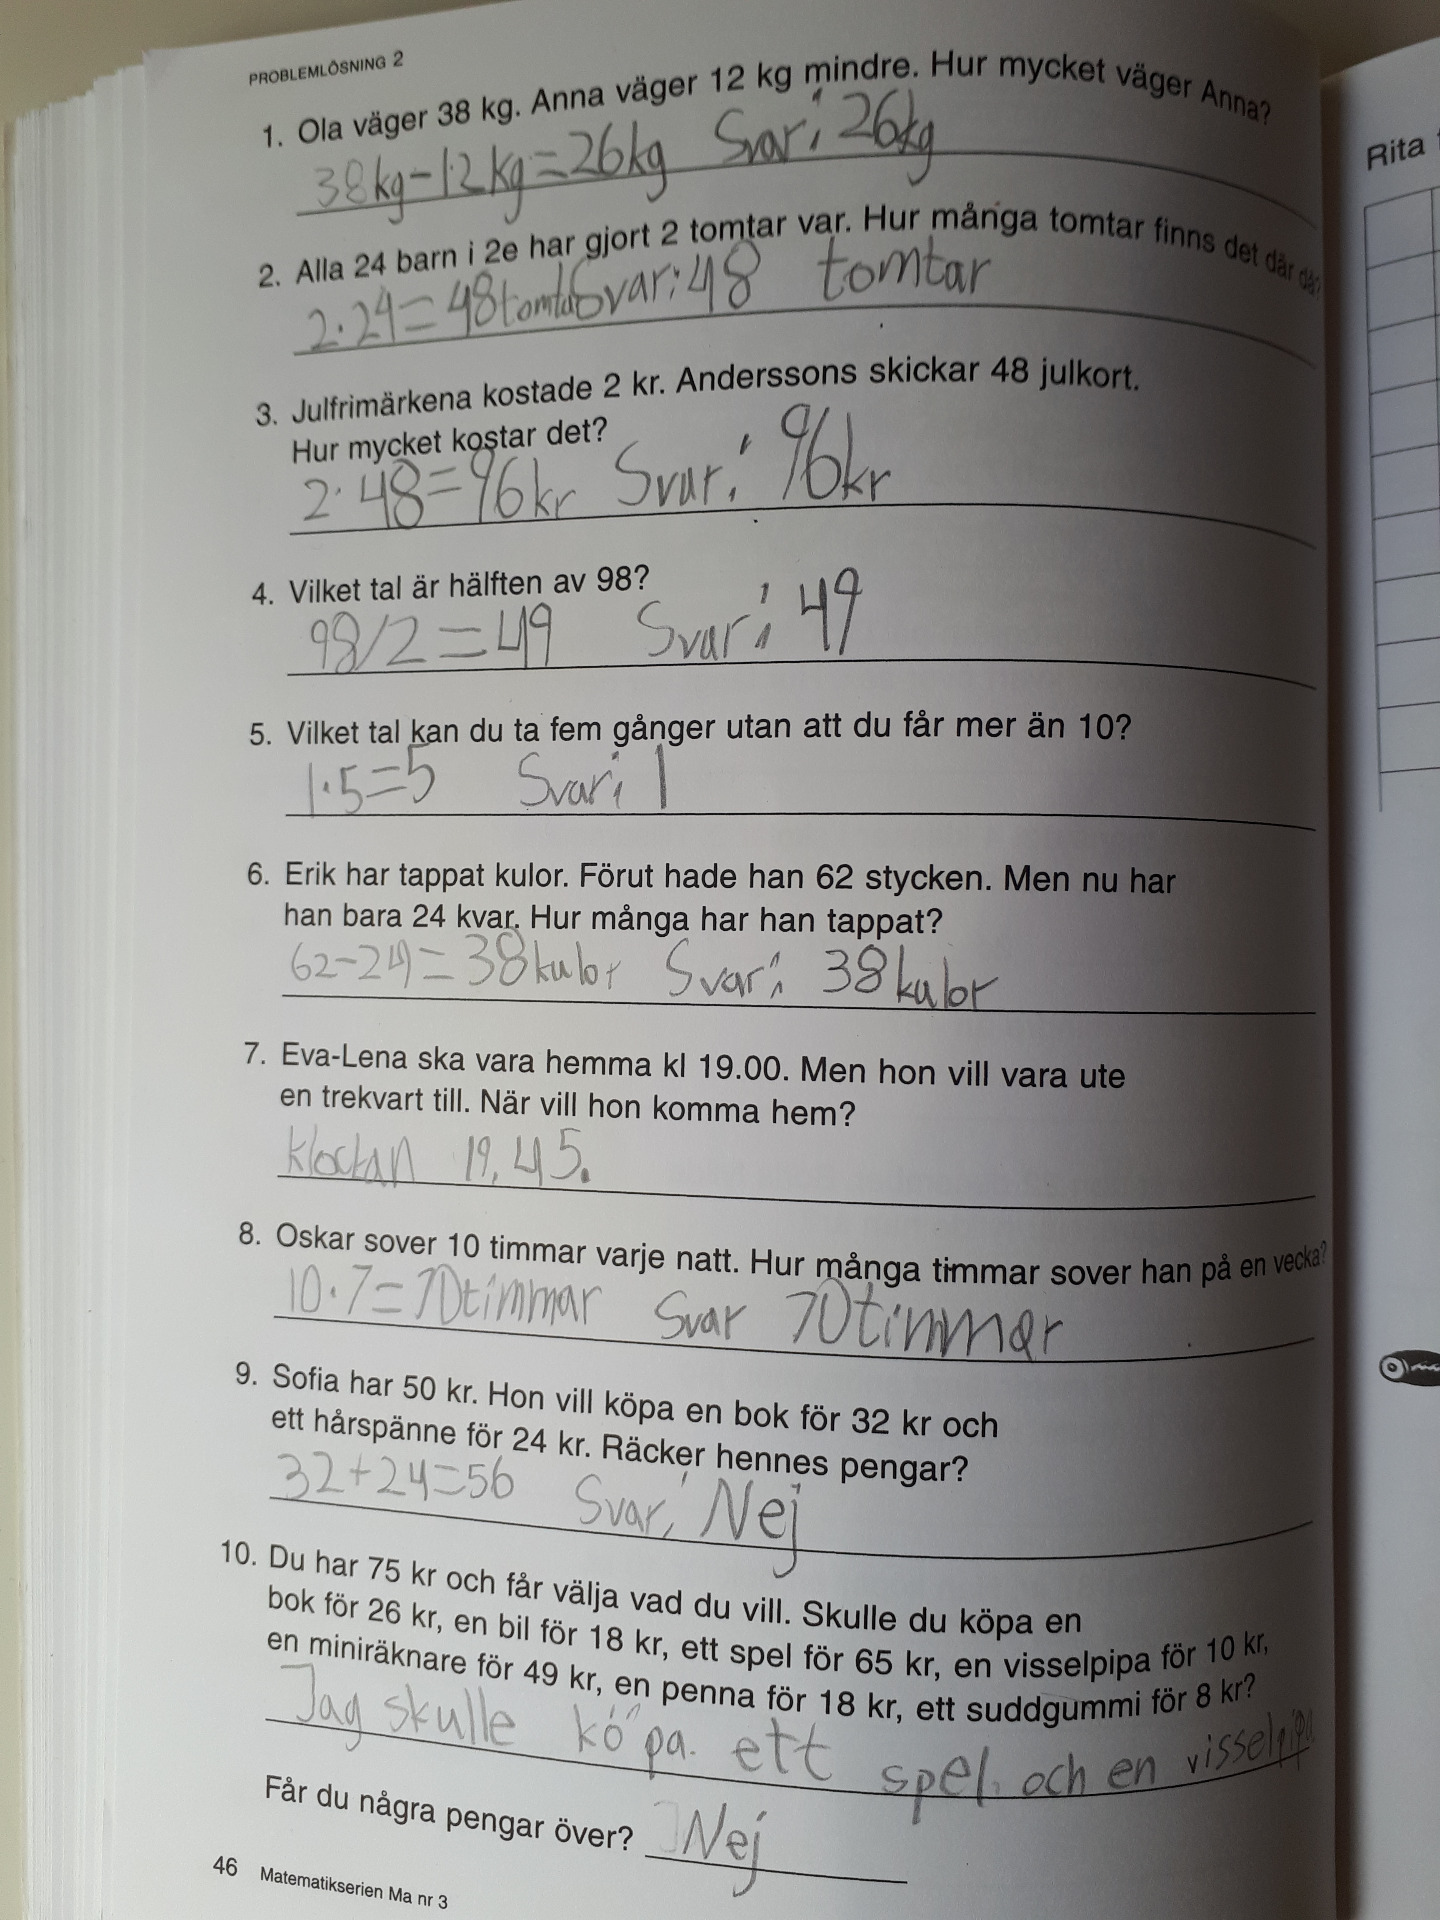 PROBLEMLÖSNING 2
1. Ola väger 38 kg. Anna väger 12 kg mindre. Hur mycket väger Anna?
38kg-12kg=26kg Svar: 26kg
2. Alla 24 barn i 2e har gjort 2 tomtar var. Hur många tomtar finns det där då?
2·24=48tomtar Svar: 48 tomtar
3. Julfrimärkena kostade 2 kr. Anderssons skickar 48 julkort.
Hur mycket kostar det?
2·48=96kr Svar: 96kr
4. Vilket tal är hälften av 98?
98/2=49 Svar: 49
5. Vilket tal kan du ta fem gånger utan att du får mer än 10?
1·5=5 Svar: 1
6. Erik har tappat kulor. Förut hade han 62 stycken. Men nu har
han bara 24 kvar. Hur många har han tappat?
62-24=38kulor Svar: 38kulor
7. Eva-Lena ska vara hemma kl 19.00. Men hon vill vara ute
en trekvart till. När vill hon komma hem?
klockan 19.45.
8. Oskar sover 10 timmar varje natt. Hur många timmar sover han på en vecka?
10·7=70timmar Svar 70timmar
9. Sofia har 50 kr. Hon vill köpa en bok för 32 kr och
ett hårspänne för 24 kr. Räcker hennes pengar?
32+24=56 Svar: Nej
10. Du har 75 kr och får välja vad du vill. Skulle du köpa en
bok för 26 kr, en bil för 18 kr, ett spel för 65 kr, en visselpipa för 10 kr,
en miniräknare för 49 kr, en penna för 18 kr, ett suddgummi för 8 kr?
Jag skulle köpa. ett spel. och en visselpipa
Får du några pengar över? Nej
46 Matematikserien Ma nr 3
Rita